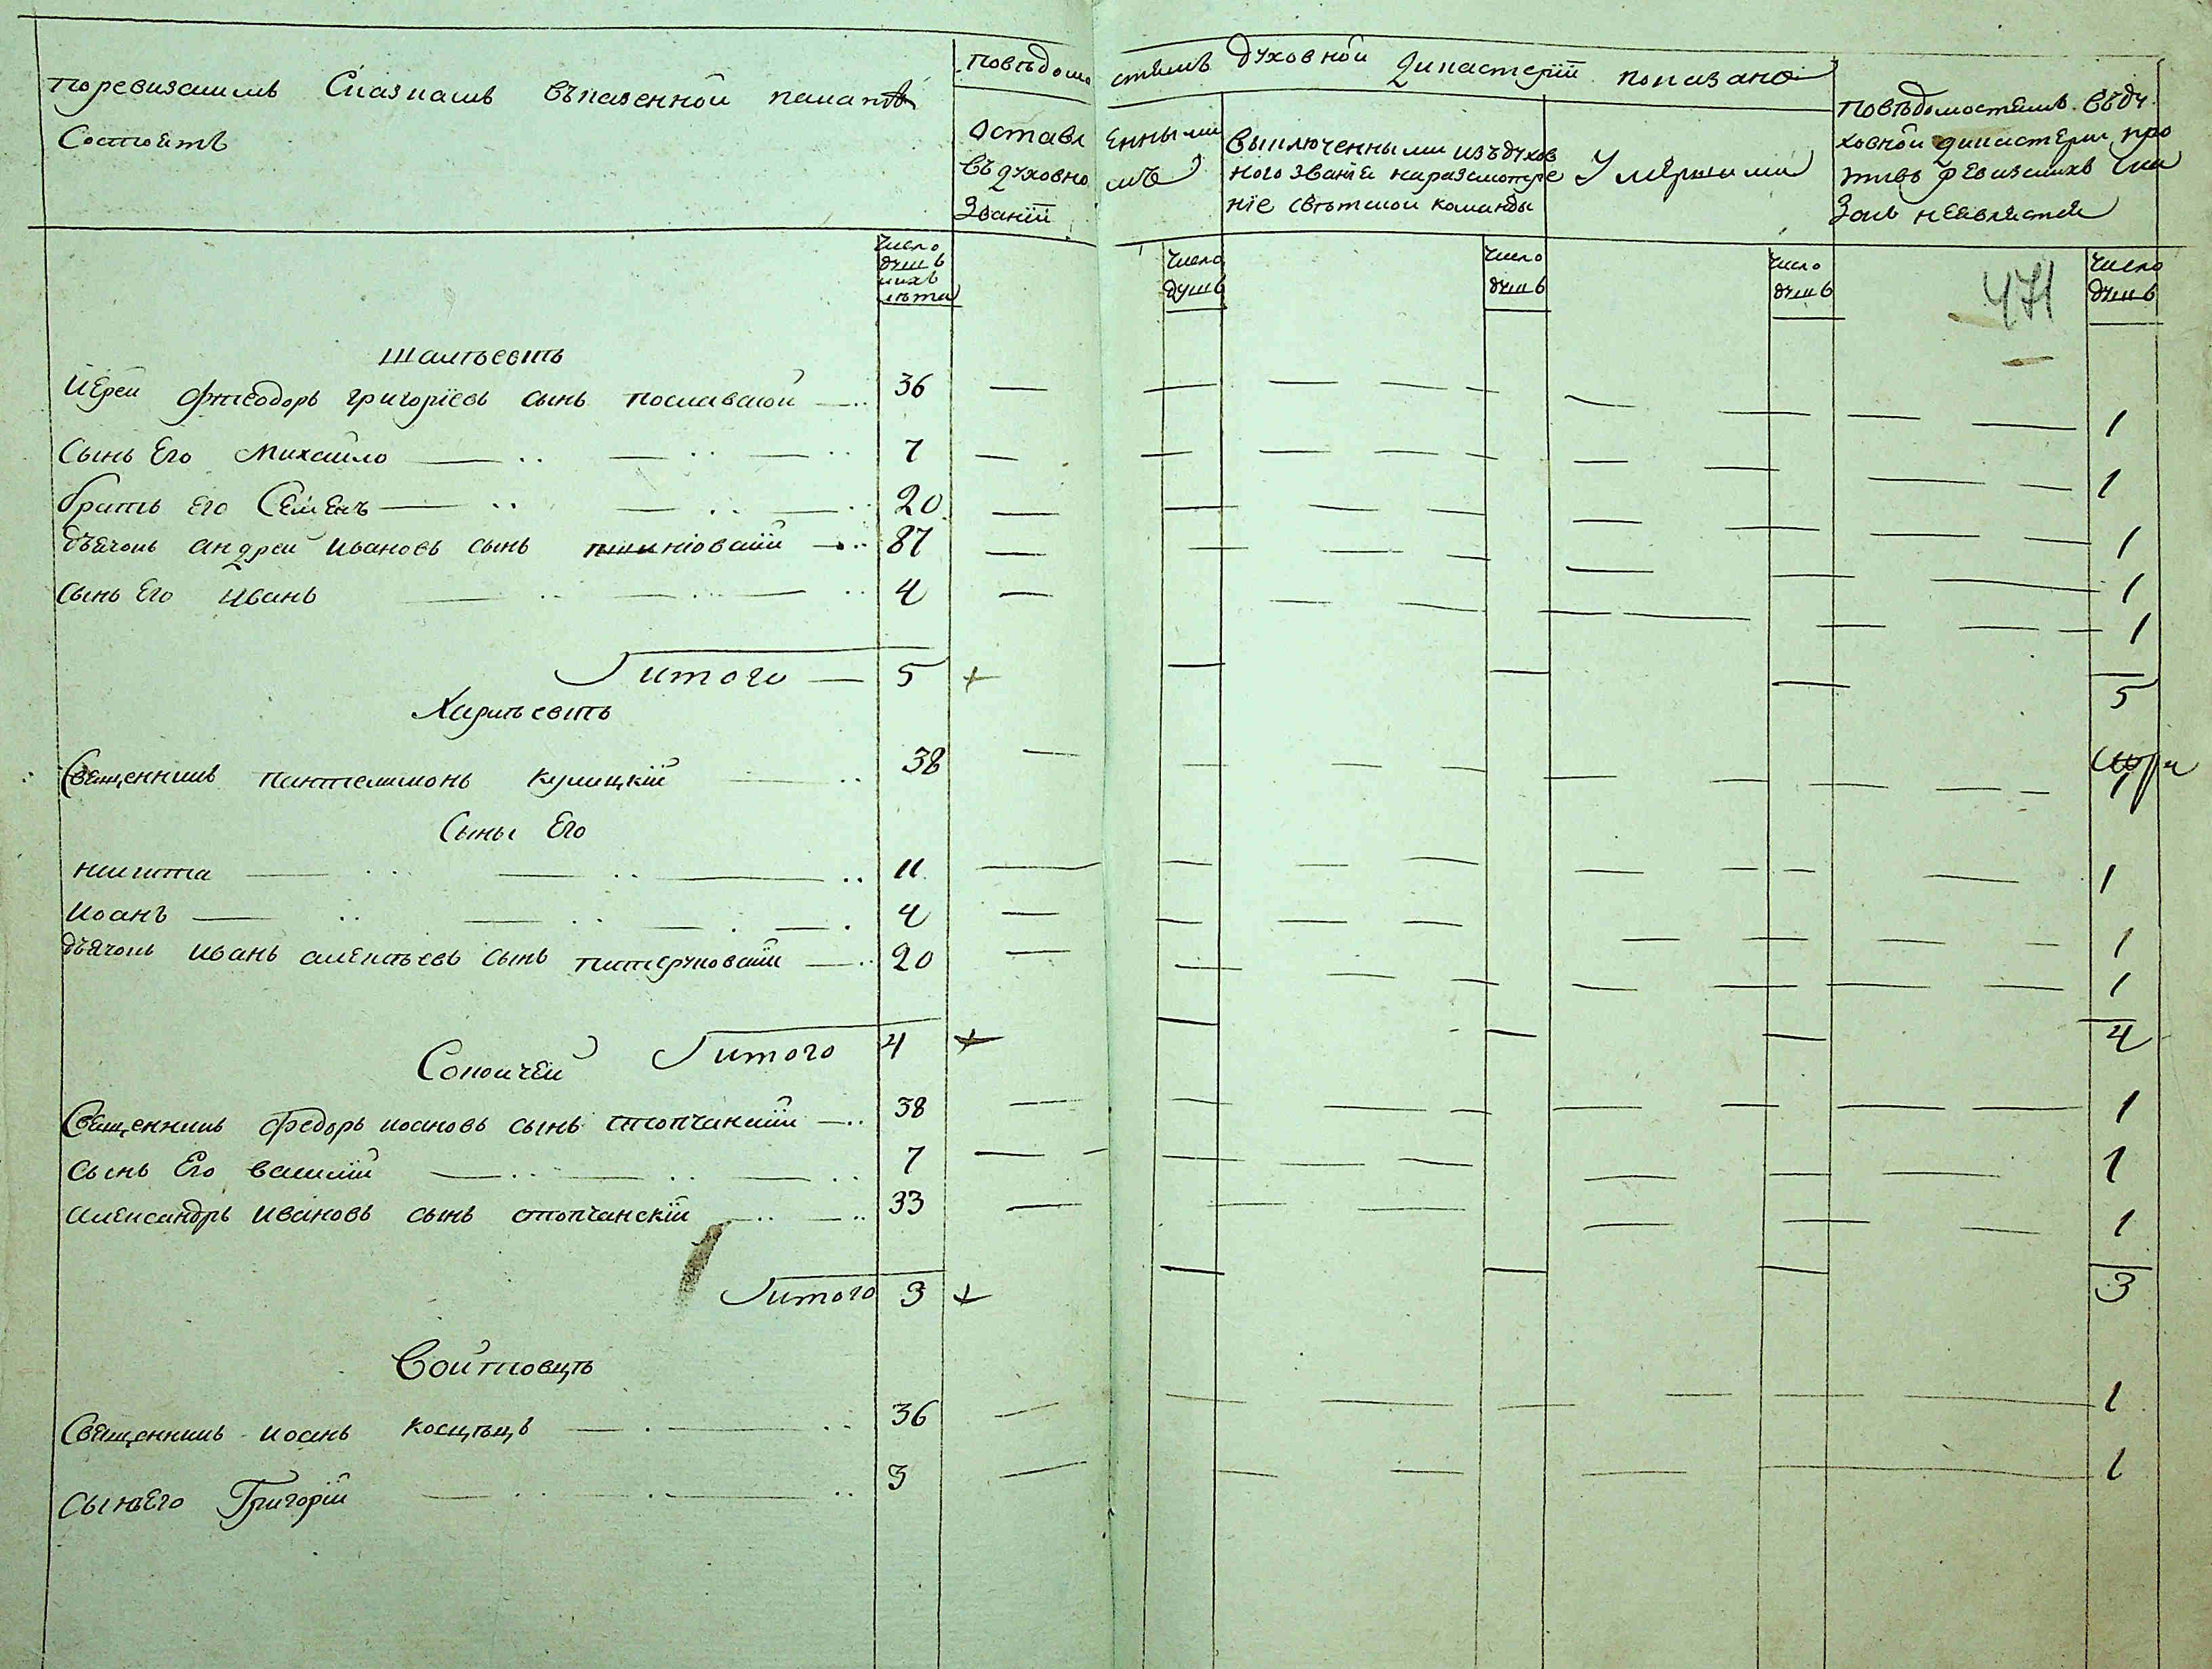 Поревизскимъ Сказкамъ въказенной палатѣ
Состоитъ
Повѣдомостямъ духовной Дикастерїи показано
Оставленными
въ духовномъ
Званїи
выключенными изъ духов
ного званїя наразсмотре
нїе свѣтской команды
Умершими
Повѣдомостямъ въ ду
ховной дикастерїи про
тивъ ревизкихъ ска
зокъ неявляется
Число
душъ
ихъ
лѣта
Число
душъ
Число
душъ
Число
душъ
471
Число
душъ
Иерей Фтеодоръ григорїевъ сынъ 36 1
Сынъ Его Михайло 7 1
братъ его Семенъ 20 1
дьячокъ андрей Ивановъ сынъ 87 1
сынъ Его иванъ 4 1
Итого 5 + 5
Священникъ пантелимонъ кулицкїй 38 1
Сыны Его
никита 11 1
Иоанъ 4 1
дьячокъ Иванъ алексѣевъ сынъ 20 1
Итого 4 + 4
Священникъ Федоръ иоановъ сынъ стопчанский 38 1
Сынъ Его василий 7 1
Александръ Ивановъ сынъ стопчанскїй 33 1
Итого 3 + 3
Войтовцѣ
Священникъ иоанъ 36 1
Сынъ Его Григорїй 3 1